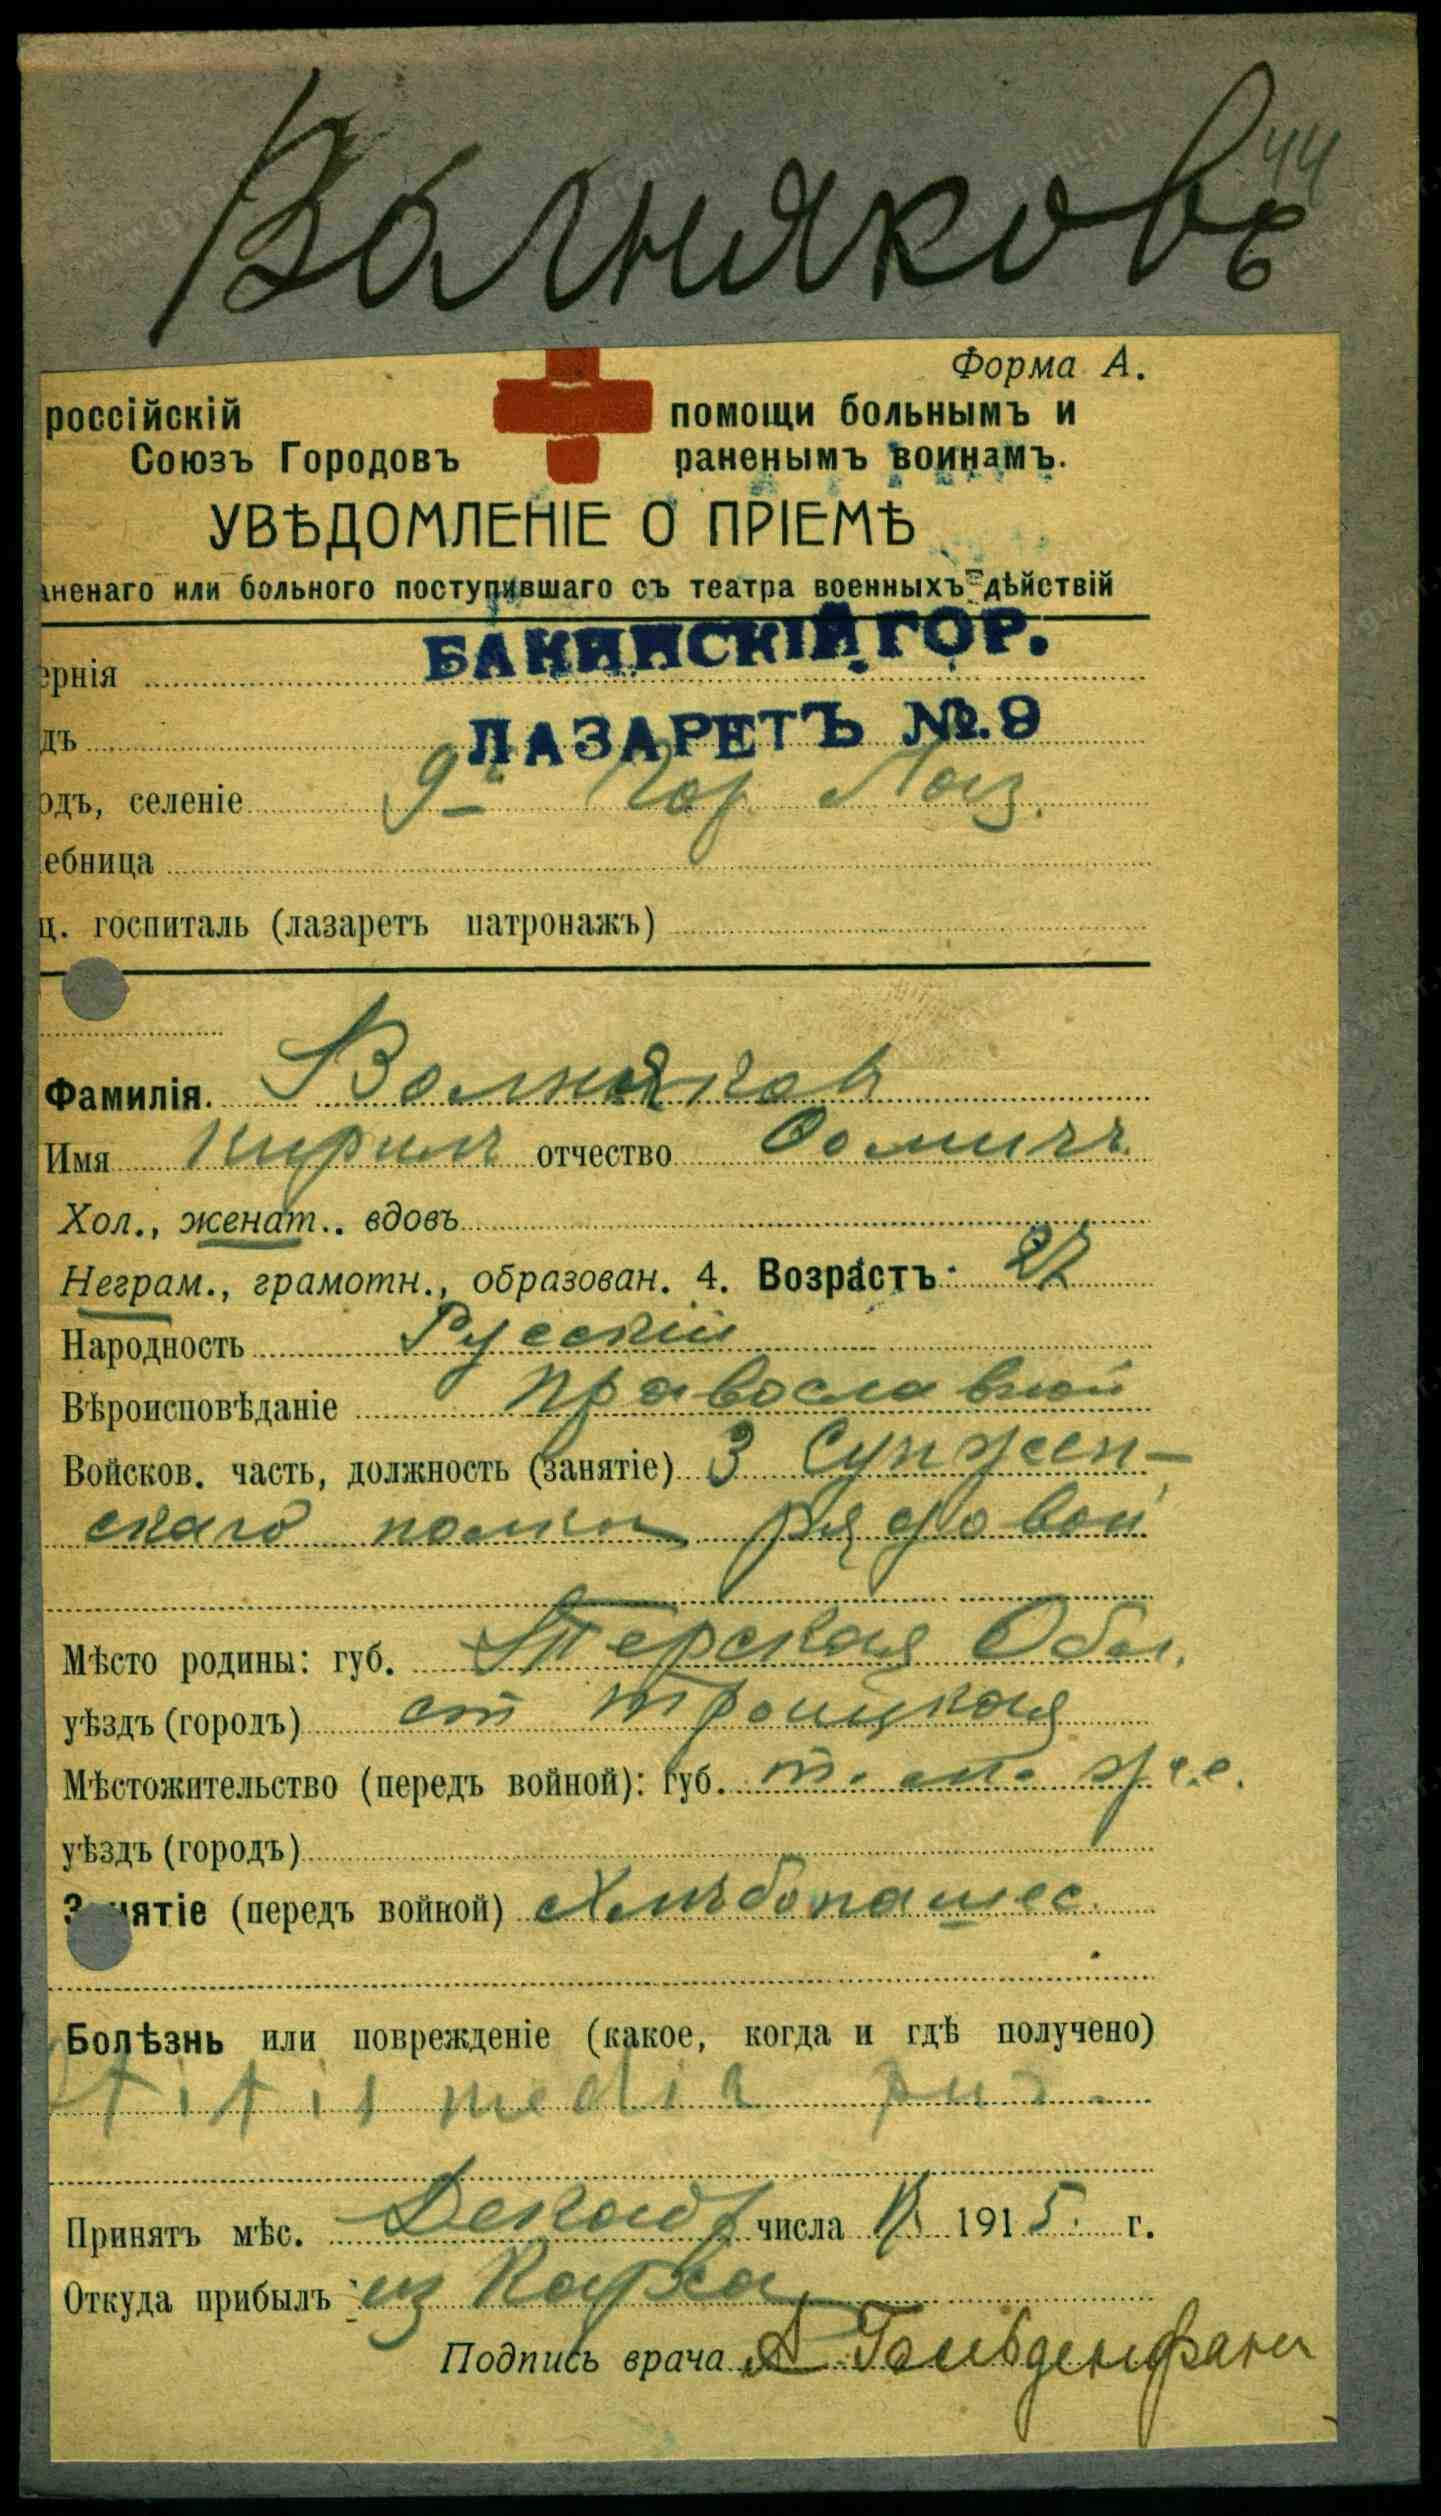 Волняковъ
44
Форма А.
россійскій помощи больнымъ и
Союзъ Городовъ раненымъ воинамъ.
УВѢДОМЛЕНІЕ О ПРІЕМѢ
аненаго или больного поступившаго съ театра военныхъ дѣйствій
ернія БАКИНСКІЙ ГОР.
дъ ЛАЗАРЕТЪ №.9
одъ, селеніе 9й Гор Лаз.
ебница
ц. госпиталь (лазаретъ патронажъ)
Фамилія. Волняков
Имя Кирилъ отчество Фомичъ
Хол., женат.. вдовъ
Неграм., грамотн., образован. 4. Возрастъ 27
Народность Русскій
Вѣроисповѣданіе православной
Войсков. часть, должность (занятіе) 3 Сунжен-
скаго полка рядовой
Мѣсто родины: губ. Терская Обл.
уѣздъ (городъ) ст Троицкая
Мѣстожительство (передъ войной): губ. т. ж.е.
уѣздъ (городъ)
Занятіе (передъ войной) Хлѣбопашес.
Болѣзнь или поврежденіе (какое, когда и гдѣ получено)
Otitis media pur.
Принятъ мѣс. Декабр числа 1915 г.
Откуда прибылъ из Карса
Подпись врача А Гольденфанг